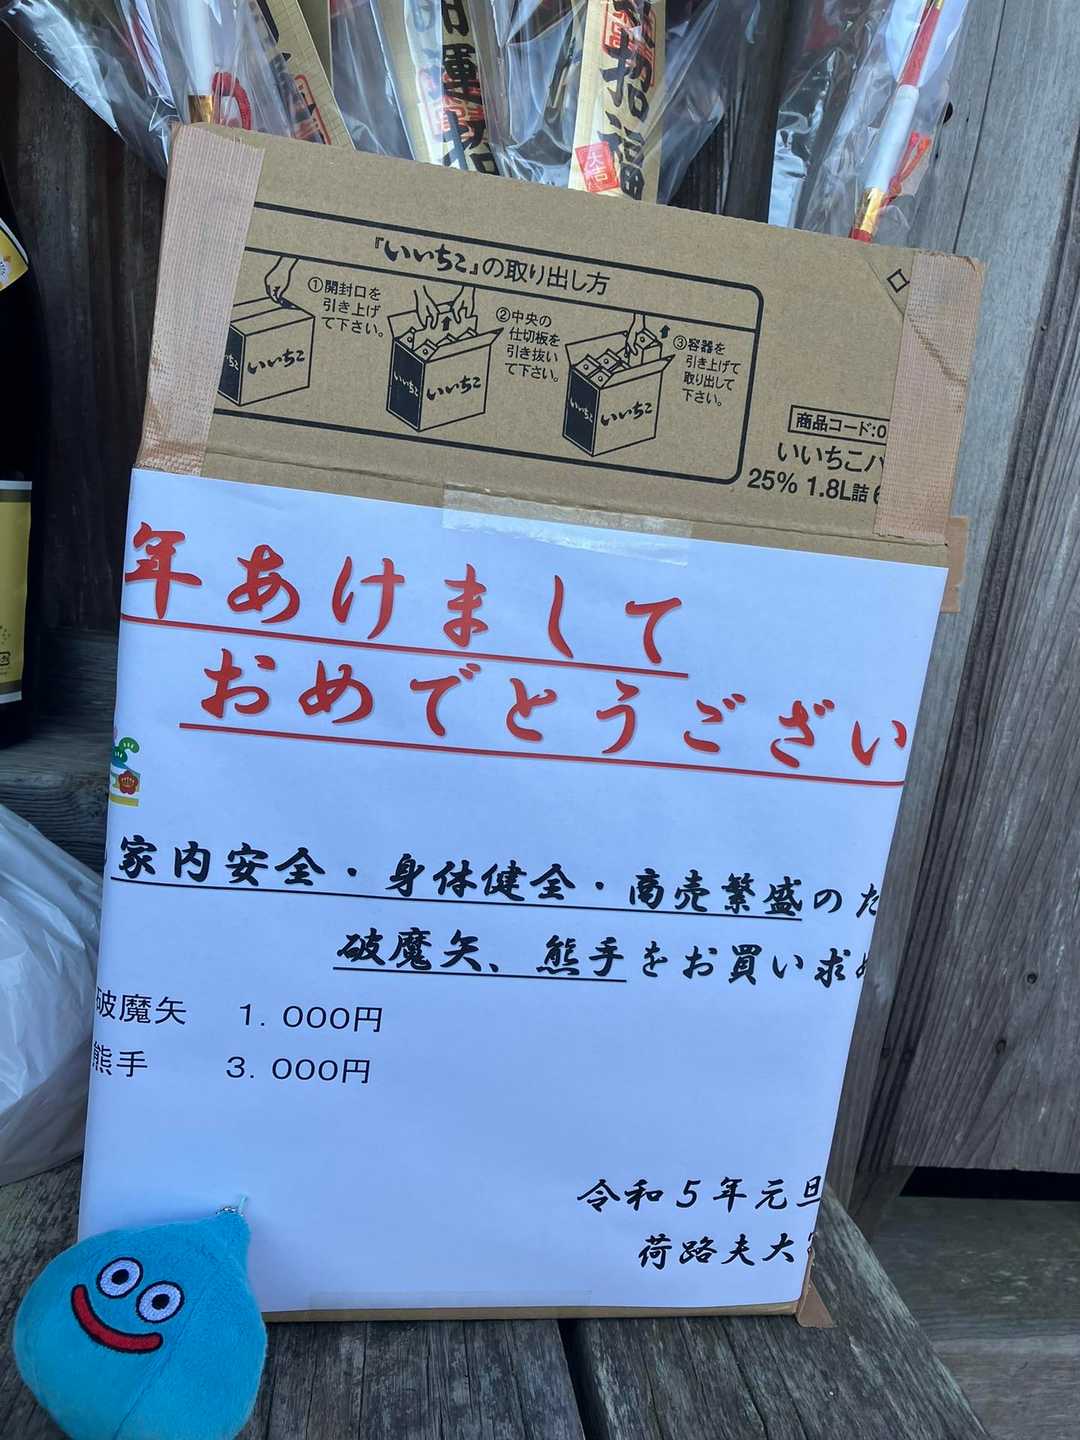 開運招
招福
大吉
『いいちこ』の取り出し方
①開封口を
引き上げ
て下さい。
②中央の
仕切板を
引き抜い
て下さい。
③容器を
引き上げて
取り出して
下さい。
いいちこ
いいちこ
いいちこ
いいちこ
いいちこ
商品コード:0
いいちこパ
25% 1.8L詰
年あけまして
おめでとうござい
家内安全・身体健全・商売繁盛のた
破魔矢、熊手をお買い求め
破魔矢 1．000円
熊手 3．000円
令和5年元旦
荷路夫大宮